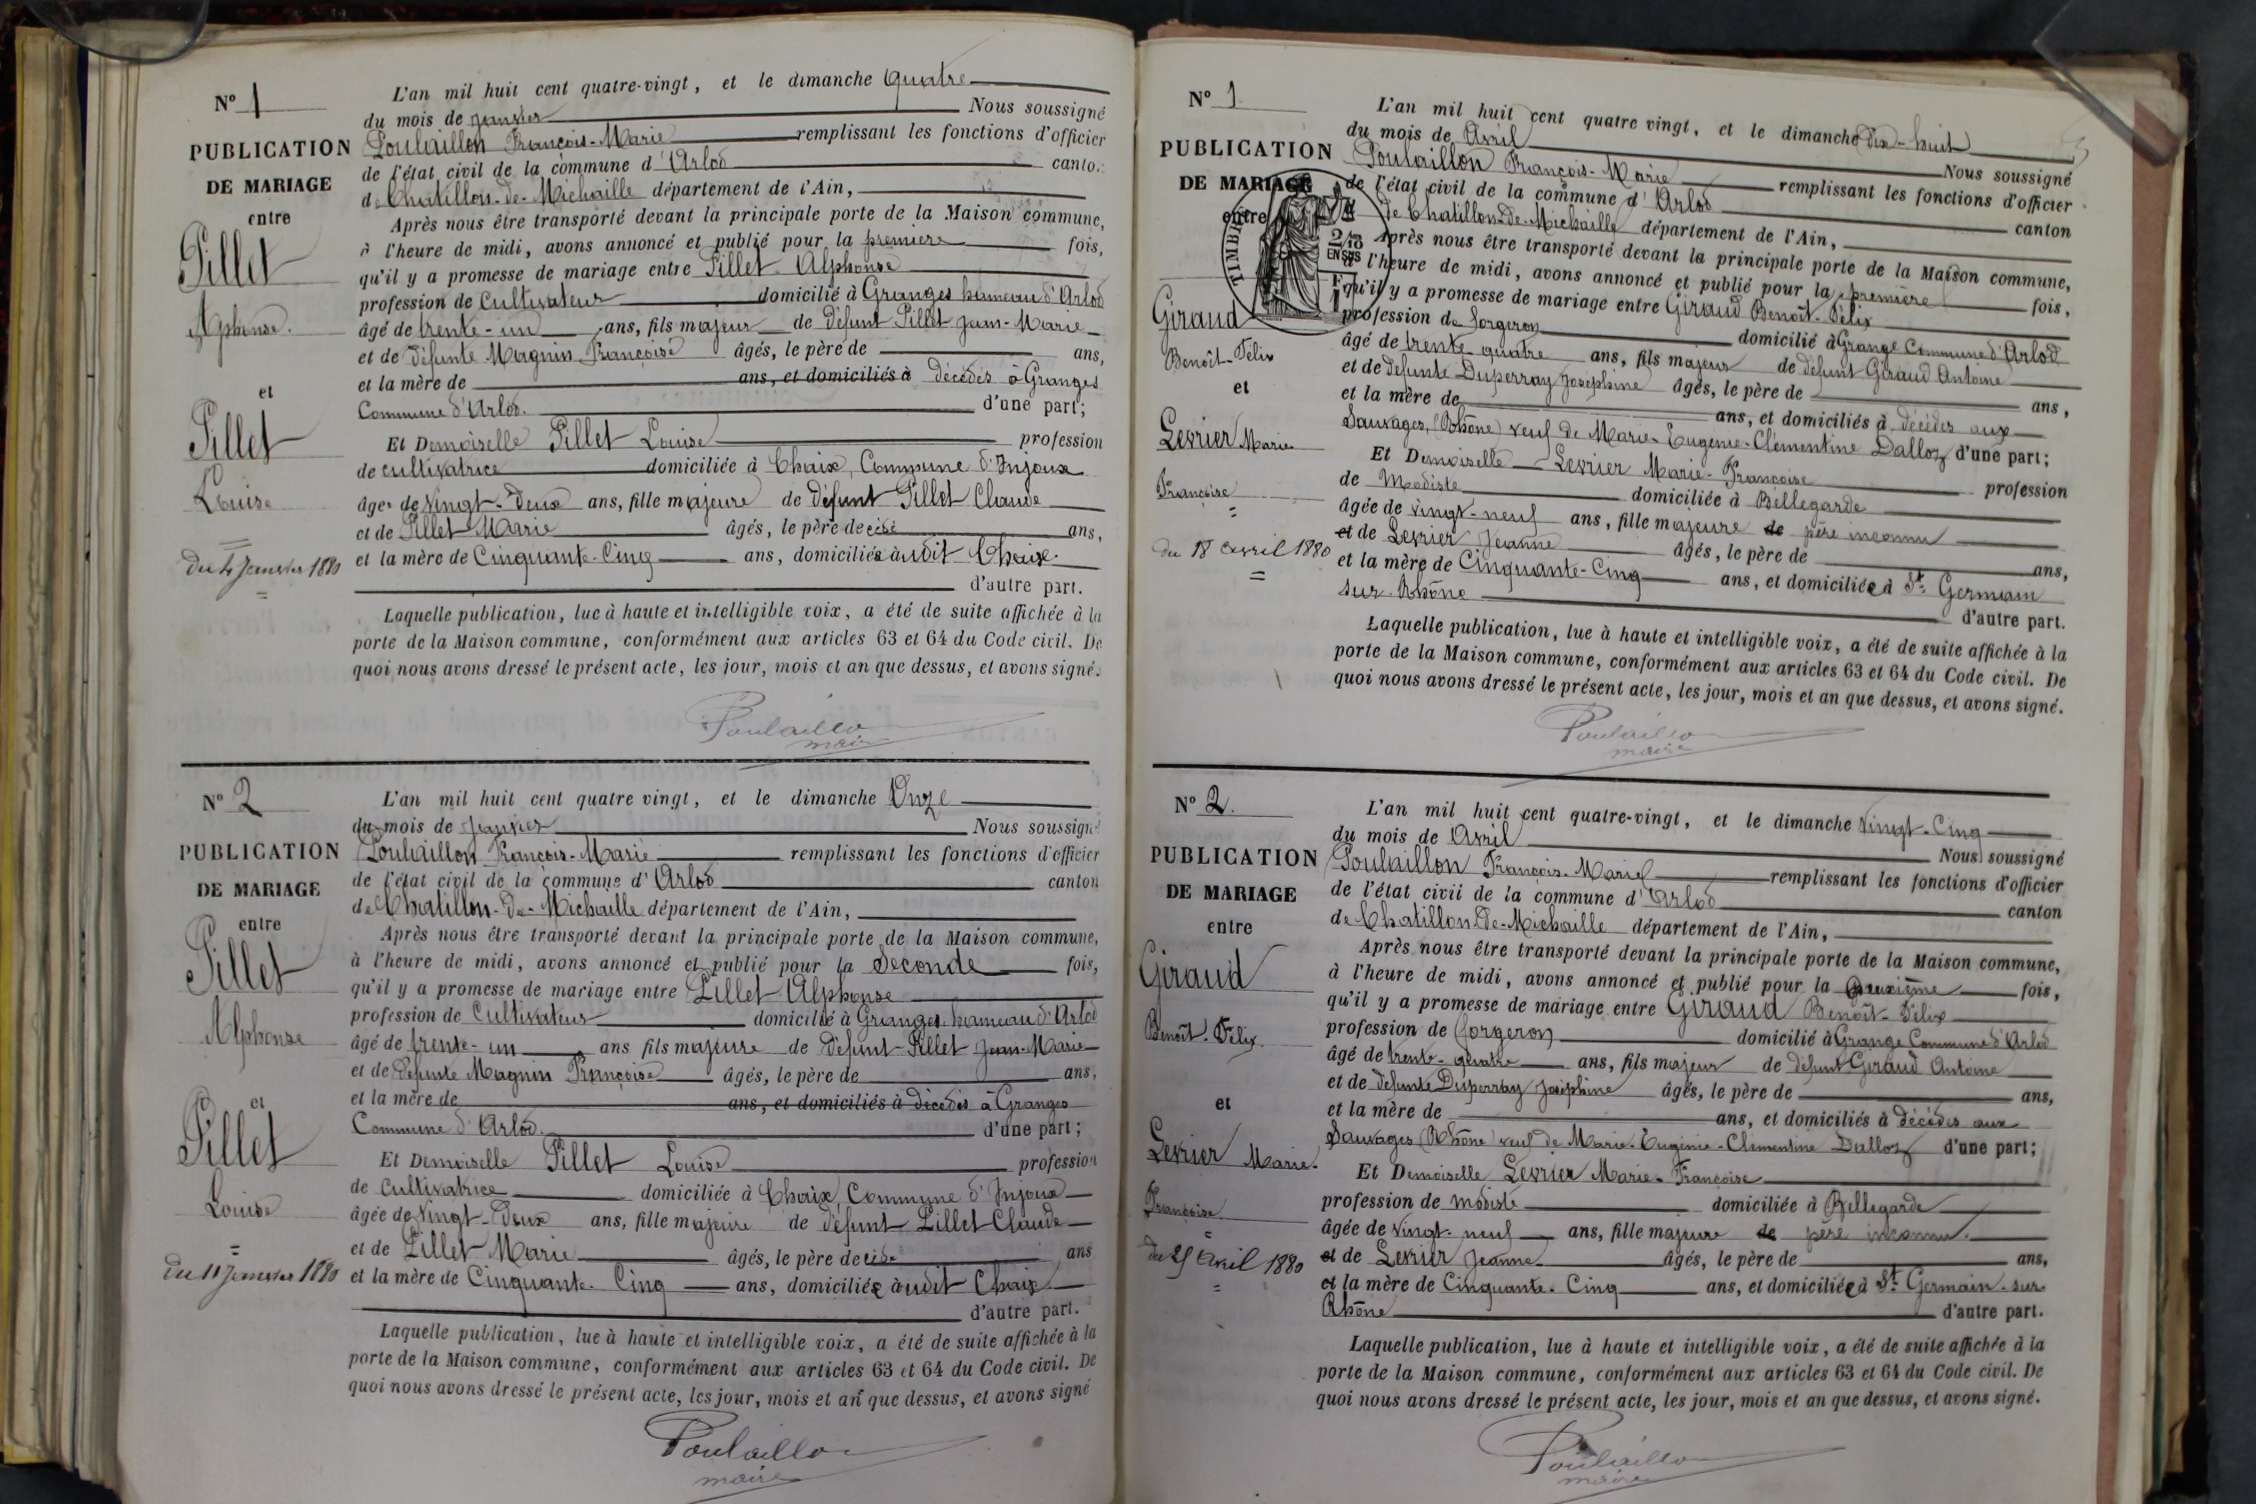 N° 1
PUBLICATION
DE MARIAGE
entre
Pillet
Alphonse.
et
Pillet
Louise
du 4 Janvier 1880
L'an mil huit cent quatre-vingt, et le dimanche quatre
du mois de janvier Nous soussigné
Poulaillon François-Marie remplissant les fonctions d'officier
de l'état civil de la commune d'Arlod canton
de Chatillon-de-Michaille département de l'Ain,
Après nous être transporté devant la principale porte de la Maison commune,
à l'heure de midi, avons annoncé et publié pour la première fois,
qu'il y a promesse de mariage entre Pillet Alphonse
profession de Cultivateur domicilié à Granges hameau d'Arlod
âgé de trente-un ans, fils majeur de défunt Pillet Jean-Marie
et de défunte Magnin Françoise âgés, le père de ans,
et la mère de ans, et domiciliés à décédés à Granges
Commune d'Arlod. d'une part;
Et Demoiselle Pillet Louise profession
de cultivatrice domiciliée à Chaix, Commune d'Injoux
âgée de vingt-deux ans, fille majeure de défunt Pillet Claude
et de Pillet Marie âgés, le père décédé ans,
et la mère de Cinquante-Cinq ans, domiciliée audit Chaix.
d'autre part.
Laquelle publication, lue à haute et intelligible voix, a été de suite affichée à la
porte de la Maison commune, conformément aux articles 63 et 64 du Code civil. De
quoi nous avons dressé le présent acte, les jour, mois et an que dessus, et avons signé.
Poulaillon
maire
N° 2
PUBLICATION
DE MARIAGE
entre
Pillet
Alphonse
et
Pillet
Louise
du 11 Janvier 1880
L'an mil huit cent quatre vingt, et le dimanche Onze
du mois de Janvier Nous soussigné
Poulaillon François-Marie remplissant les fonctions d'officier
de l'état civil de la commune d'Arlod canton
de Chatillon-de-Michaille département de l'Ain,
Après nous être transporté devant la principale porte de la Maison commune,
à l'heure de midi, avons annoncé et publié pour la Seconde fois,
qu'il y a promesse de mariage entre Pillet Alphonse
profession de Cultivateur domicilié à Granges hameau d'Arlod
âgé de trente-un ans fils majeure de défunt Pillet Jean-Marie
et de défunte Magnin Françoise âgés, le père de ans,
et la mère de ans, et domiciliés à décédés à Granges
Commune d'Arlod. d'une part;
Et Demoiselle Pillet Louise profession
de Cultivatrice domiciliée à Chaix, Commune d'Injoux
âgée de vingt-deux ans, fille majeure de défunt Pillet Claude
et de Pillet Marie âgés, le père décédé ans
et la mère de Cinquante-Cinq ans, domiciliée audit Chaix
d'autre part.
Laquelle publication, lue à haute et intelligible voix, a été de suite affichée à la
porte de la Maison commune, conformément aux articles 63 et 64 du Code civil. De
quoi nous avons dressé le présent acte, les jour, mois et an que dessus, et avons signé
Poulaillon
maire
N° 1
PUBLICATION
DE MARIAGE
entre
TIMBRE
2/10
EN SUS
Giraud
Benoît-Félix
et
Levrier Marie
Françoise
du 18 avril 1880
L'an mil huit cent quatre vingt, et le dimanche dix-huit
du mois de Avril Nous soussigné
Poulaillon François-Marie remplissant les fonctions d'officier
de l'état civil de la commune d'Arlod canton
de Chatillon-de-Michaille département de l'Ain,
Après nous être transporté devant la principale porte de la Maison commune,
à l'heure de midi, avons annoncé et publié pour la première fois,
qu'il y a promesse de mariage entre Giraud Benoît-Félix
profession de forgeron domicilié à Grange Commune d'Arlod
âgé de trente quatre ans, fils majeur de défunt Giraud Antoine
et de défunte Duperray Joséphine âgés, le père de ans,
et la mère de ans, et domiciliés à décédés aux
Sauvages, (Rhône) veuf de Marie-Eugénie-Clémentine Dalloz d'une part;
Et Demoiselle Levrier Marie-Françoise profession
de Modiste domiciliée à Bellegarde
âgée de vingt-neuf ans, fille majeure de père inconnu
et de Levrier Jeanne âgés, le père de ans,
et la mère de Cinquante-Cinq ans, et domiciliée à St Germain
sur-Rhône d'autre part.
Laquelle publication, lue à haute et intelligible voix, a été de suite affichée à la
porte de la Maison commune, conformément aux articles 63 et 64 du Code civil. De
quoi nous avons dressé le présent acte, les jour, mois et an que dessus, et avons signé.
Poulaillon
maire
N° 2.
PUBLICATION
DE MARIAGE
entre
Giraud
Benoît-Félix.
et
Levrier Marie-
Françoise.
du 25 Avril 1880
L'an mil huit cent quatre-vingt, et le dimanche Vingt-Cinq
du mois de Avril Nous soussigné
Poulaillon François-Marie remplissant les fonctions d'officier
de l'état civil de la commune d'Arlod canton
de Chatillon-de-Michaille département de l'Ain,
Après nous être transporté devant la principale porte de la Maison commune,
à l'heure de midi, avons annoncé et publié pour la deuxième fois,
qu'il y a promesse de mariage entre Giraud Benoît-Félix
profession de forgeron domicilié à Grange Commune d'Arlod
âgé de trente-quatre ans, fils majeur de défunt Giraud Antoine
et de défunte Duperray Joséphine âgés, le père de ans,
et la mère de ans, et domiciliés à décédés aux
Sauvages (Rhône) veuf de Marie-Eugénie-Clémentine Dalloz d'une part;
Et Demoiselle Levrier Marie-Françoise
profession de modiste domiciliée à Bellegarde
âgée de vingt-neuf ans, fille majeure de père inconnu.
et de Levrier Jeanne âgés, le père de ans,
et la mère de Cinquante-Cinq ans, et domiciliée à St Germain-sur-
Rhône d'autre part.
Laquelle publication, lue à haute et intelligible voix, a été de suite affichée à la
porte de la Maison commune, conformément aux articles 63 et 64 du Code civil. De
quoi nous avons dressé le présent acte, les jour, mois et an que dessus, et avons signé.
Poulaillon
maire